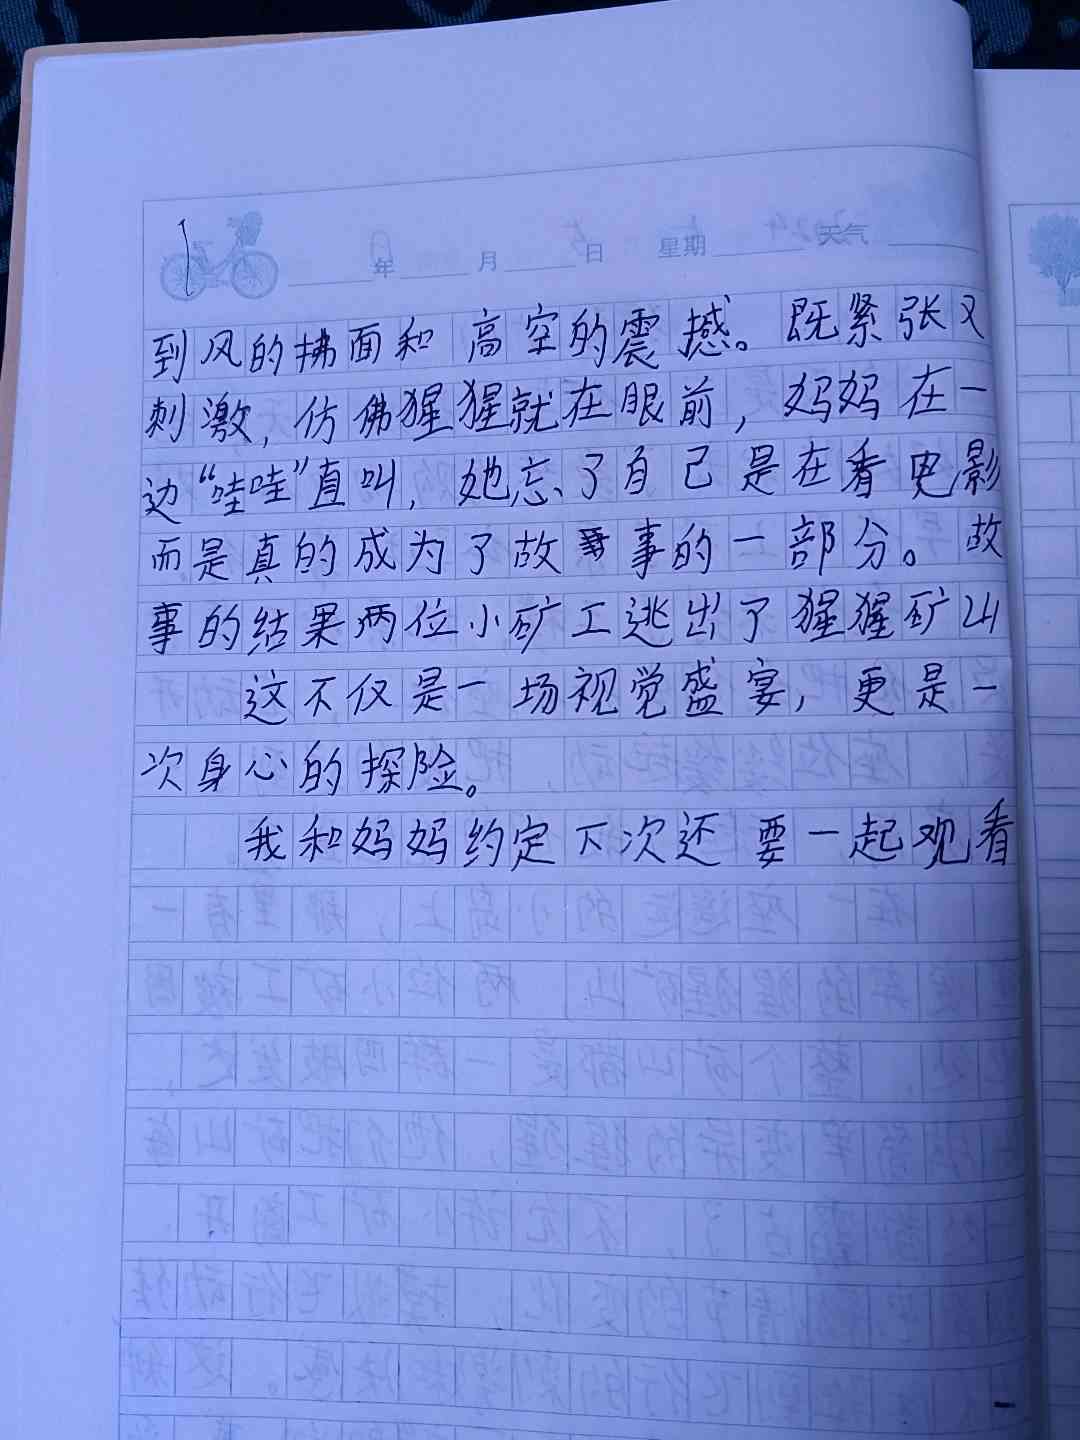 年 月 日 星期 天气
到风的拂面和高空的震撼。既紧张又
刺激,仿佛猩猩就在眼前,妈妈在一
边“哇哇”直叫,她忘了自己是在看电影
而是真的成为了故事的一部分。故
事的结果两位小矿工逃出了猩猩矿山
这不仅是一场视觉盛宴,更是一
次身心的探险。
我和妈妈约定下次还要一起观看